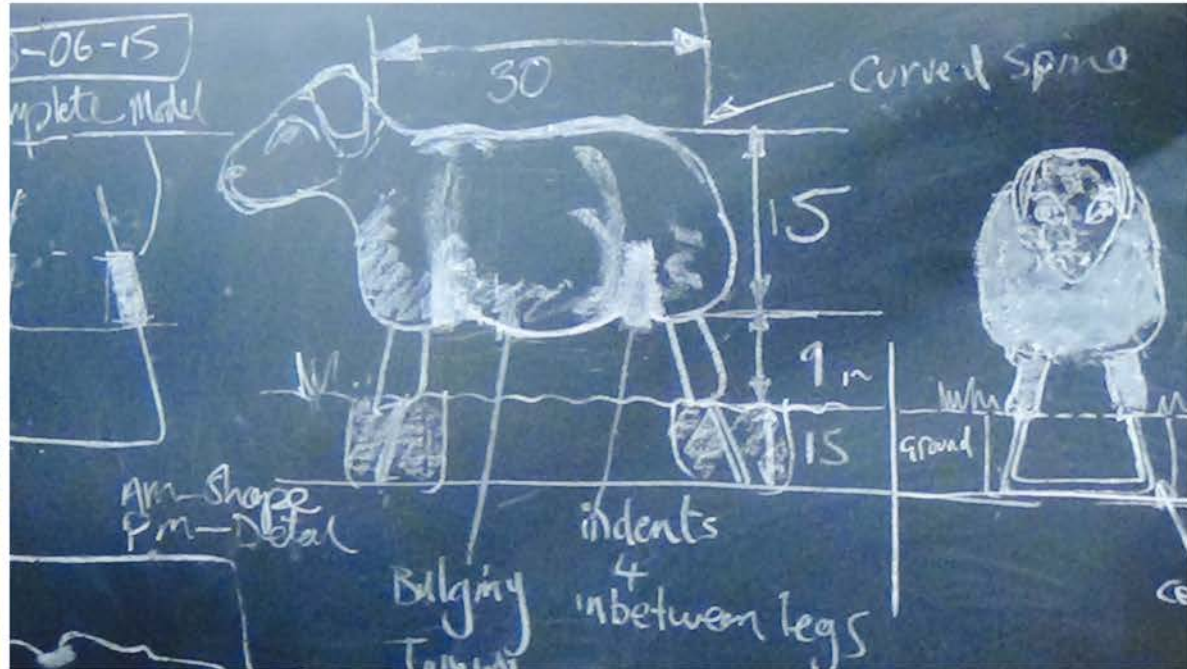 -06-15
mplete Model
30
Curved Spine
15
9 in
15
Ground
AM-Shape
PM-Detail
indents
4
inbetween legs
Bulging